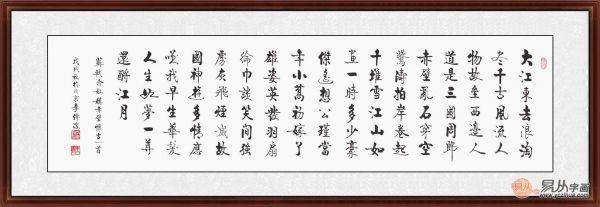 大江東去浪淘
盡千古風流人
物故壘西邊人
道是三國周郎
赤壁亂石穿空
驚濤拍岸卷起
千堆雪江山如
畫一時多少豪
傑遙想公瑾當
年小喬初嫁了
雄姿英發羽扇
綸巾談笑間強
虜灰飛煙滅故
國神遊多情應
笑我早生華髮
人生如夢一尊
還酹江月
蘇軾念奴嬌赤壁懷古一首
戊戌秋於北京李傳波
易从字画
www.yczihua.com